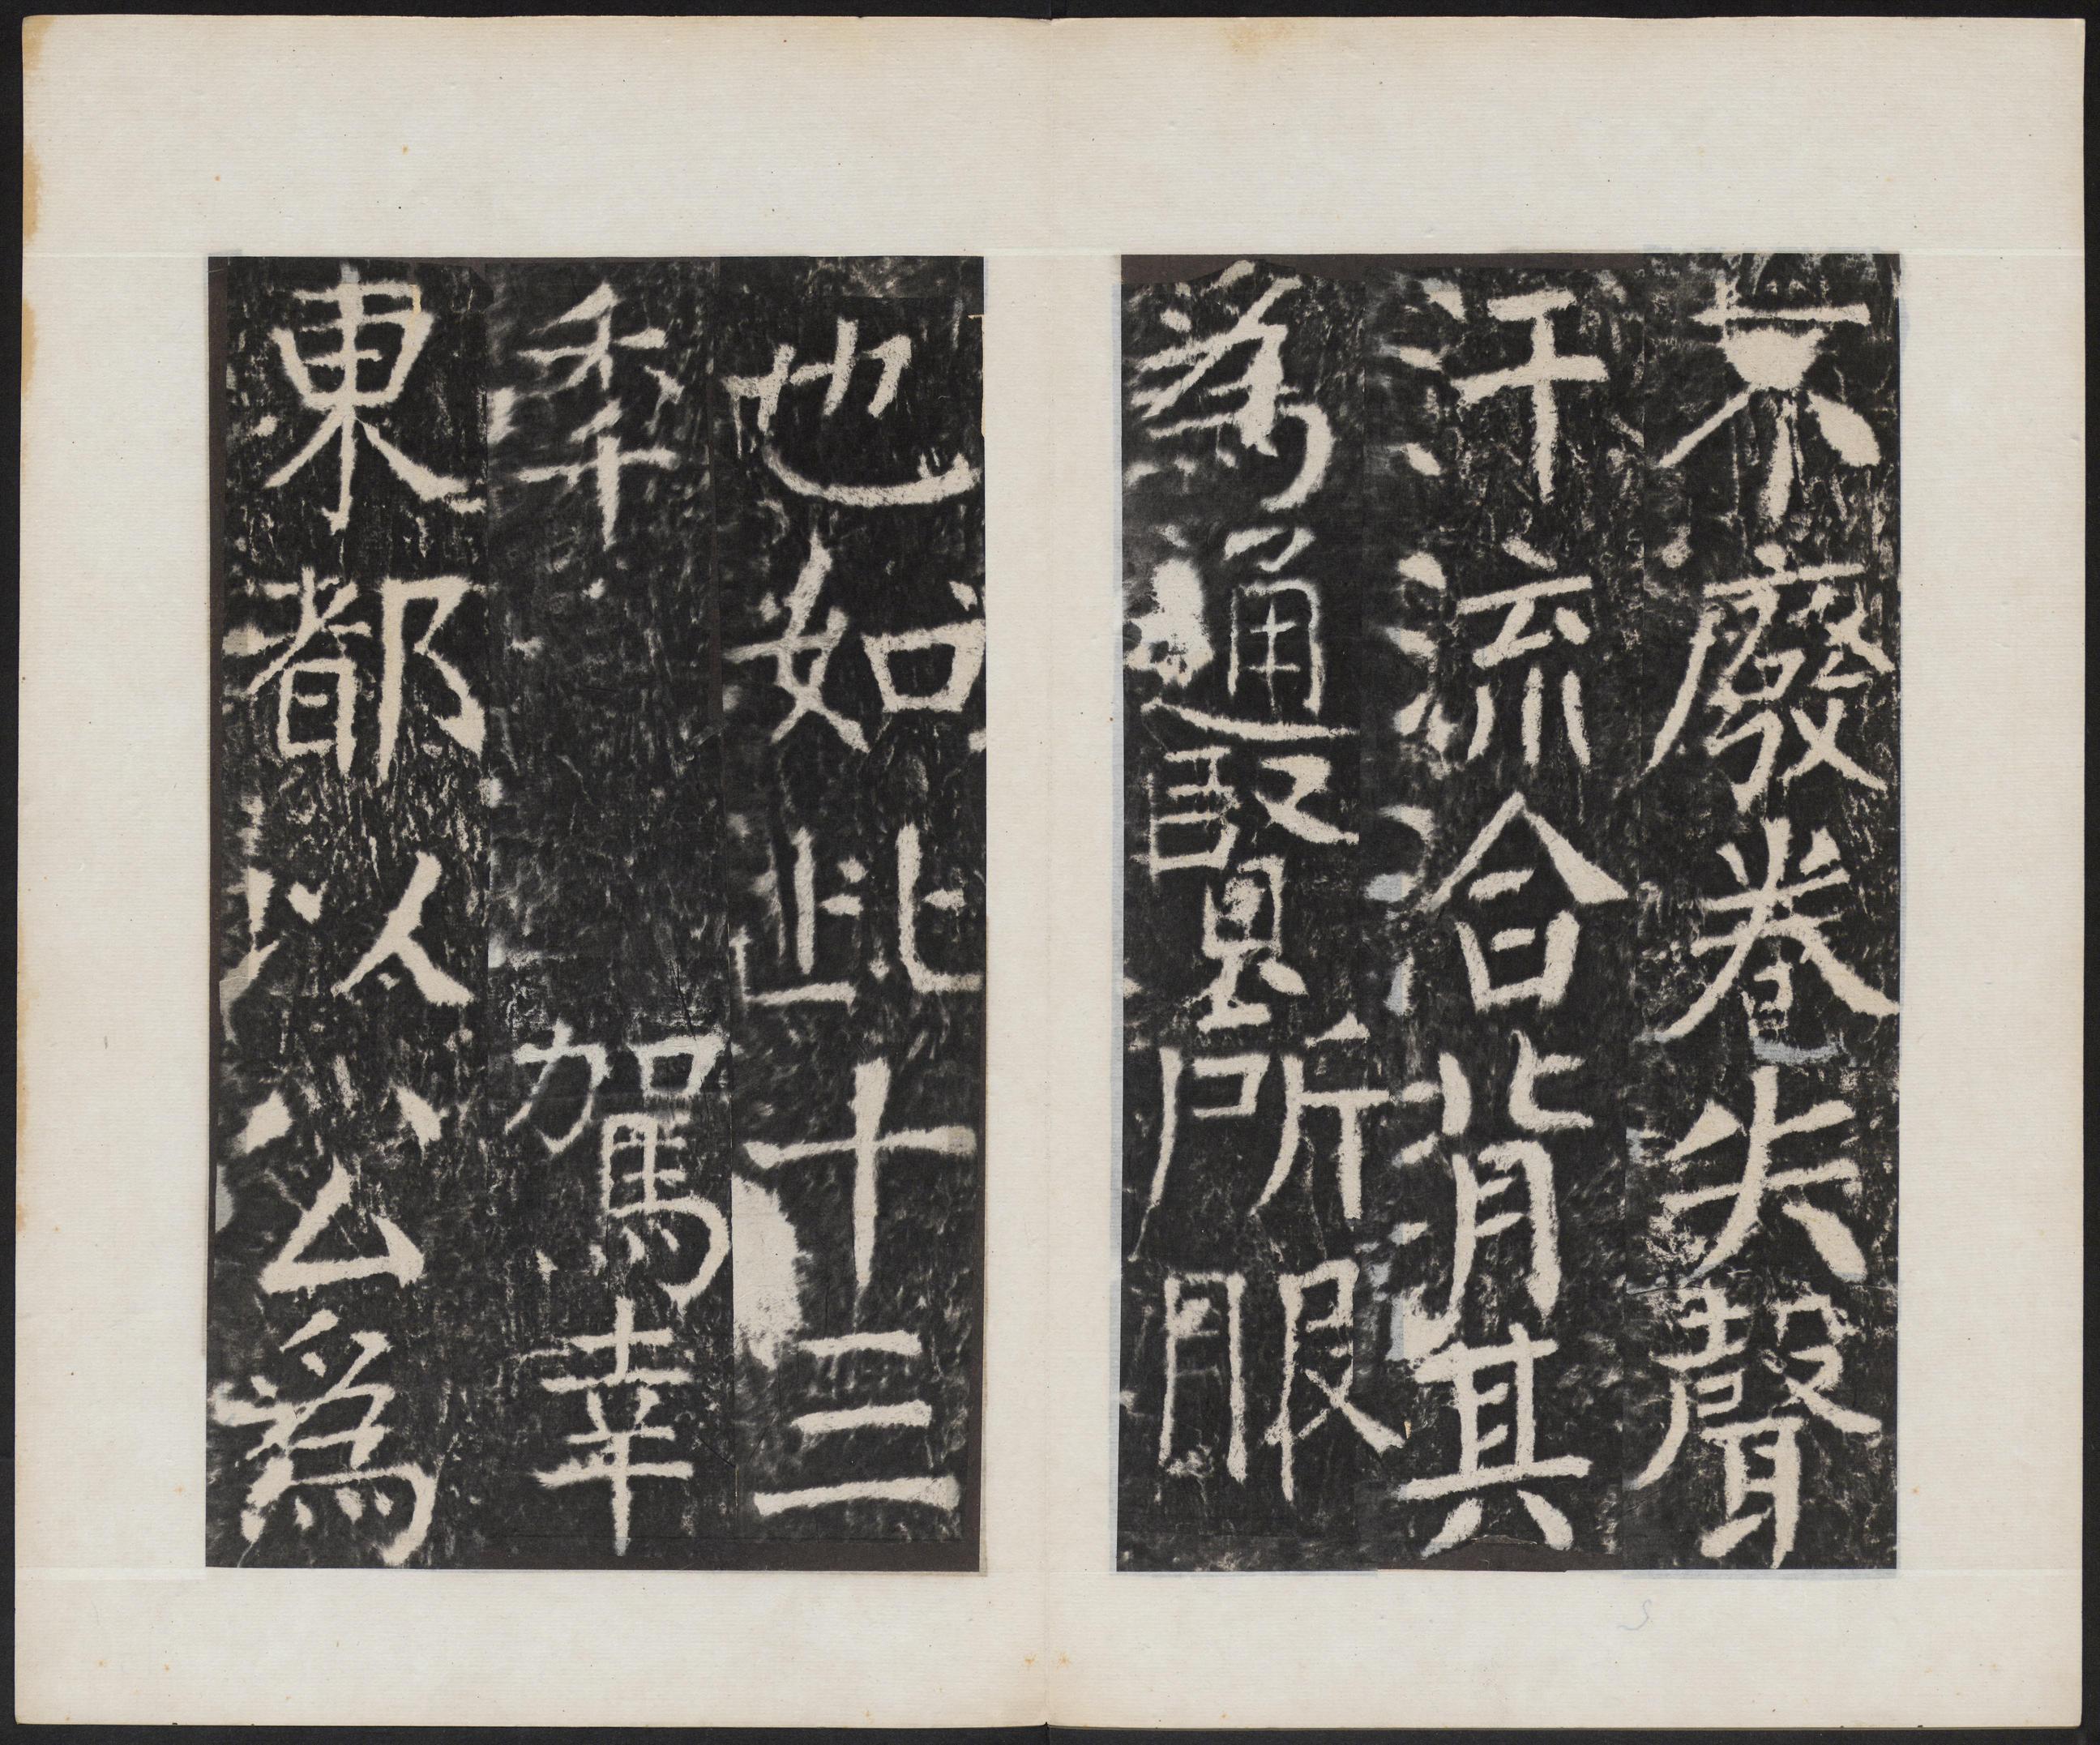 不廢卷失聲
汗流洽背其
爲通賢所服
也如此十三
秊駕幸
東都以公爲